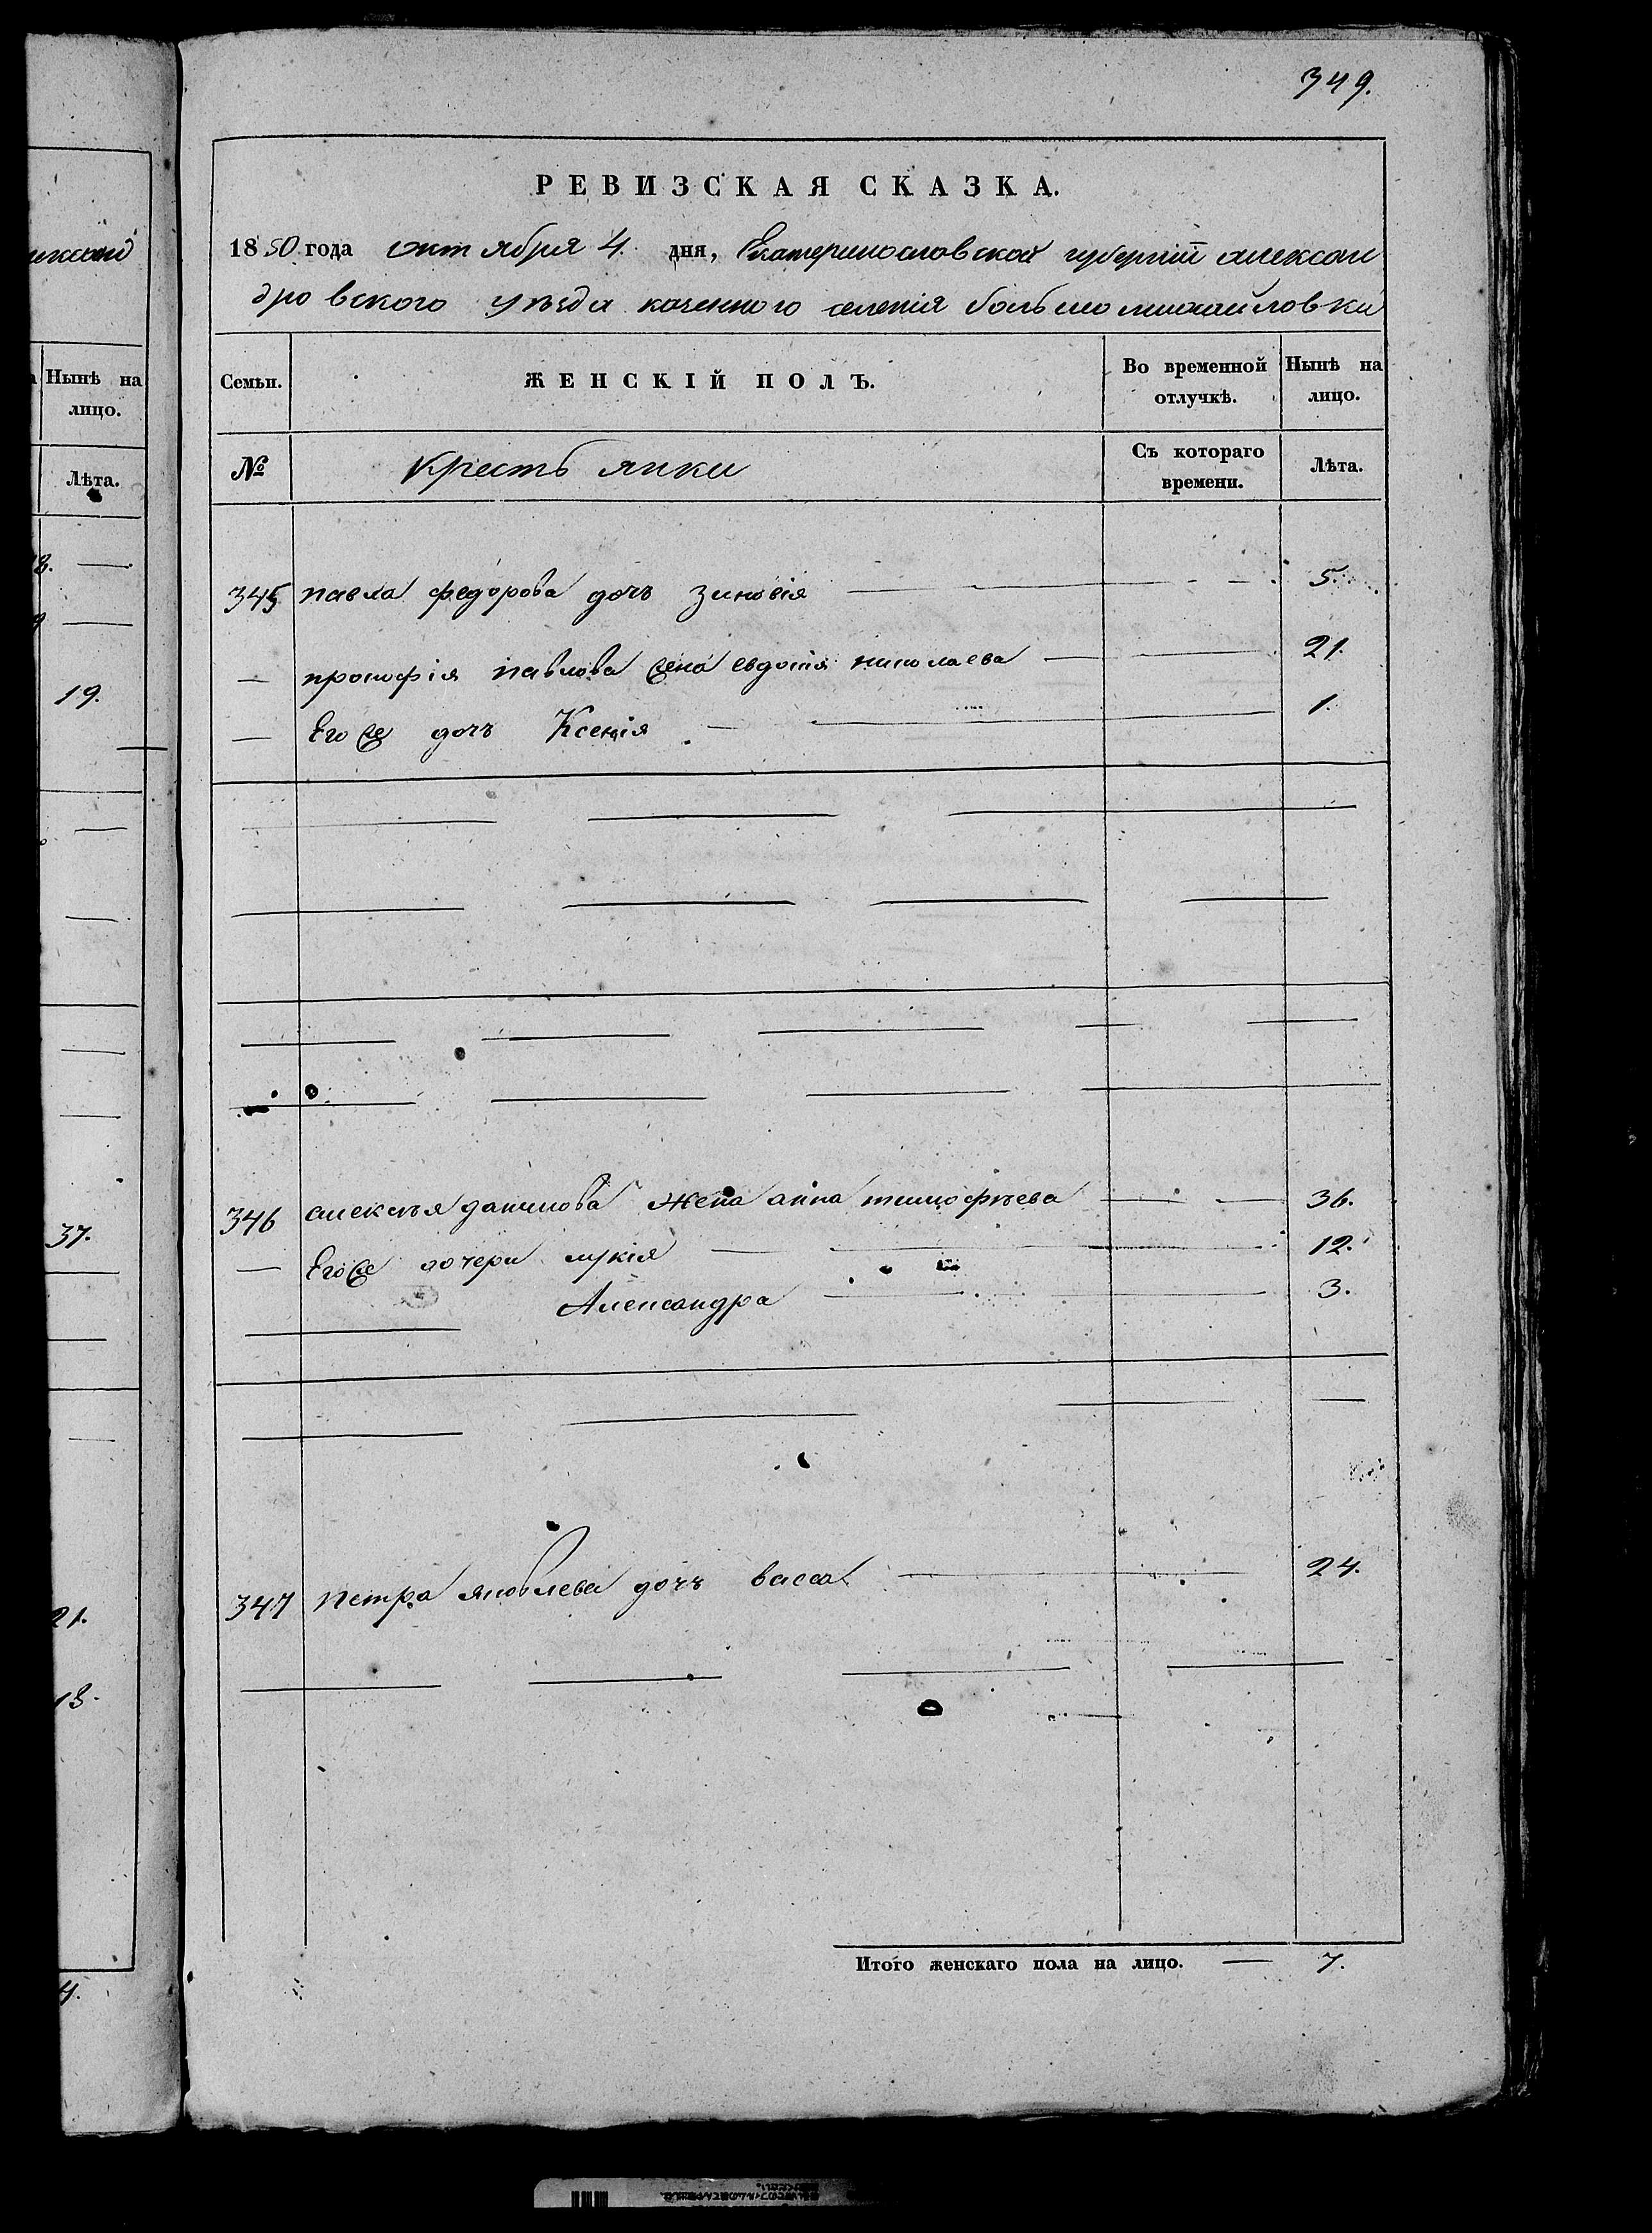 349.
РЕВИЗСКАЯ СКАЗКА.
1850 года октября 4. дня, Екатеринославской губернии алексан
дровского уѣзда казенного селенія большомихайловки
Семьи. ЖЕНСКІЙ ПОЛЪ. Во временной отлучкѣ. Нынѣ на лицо.
№ Крестьянки Съ котораго времени. Лѣта.
345 павла федорова дочь Зиновія 5.
— прокофія павлова жена евдокія николаева 21.
— Его же дочь Ксенія 1.
346 алексѣя данилова жена анна тимофѣева 36.
— Его же дочери лукія 12.
Александра 3.
347 петра яковлева дочь васса 24.
Итого женскаго пола на лицо. — 7.
Нынѣ на
лицо.
Лѣта.
19.
37.
21.